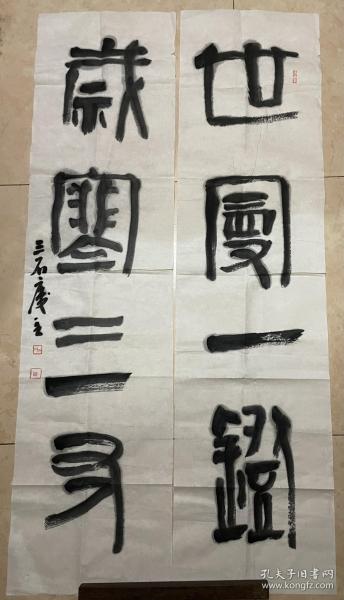 世一鐙
歲寒三友
三石
孔夫子旧书网
www.kongfz.com